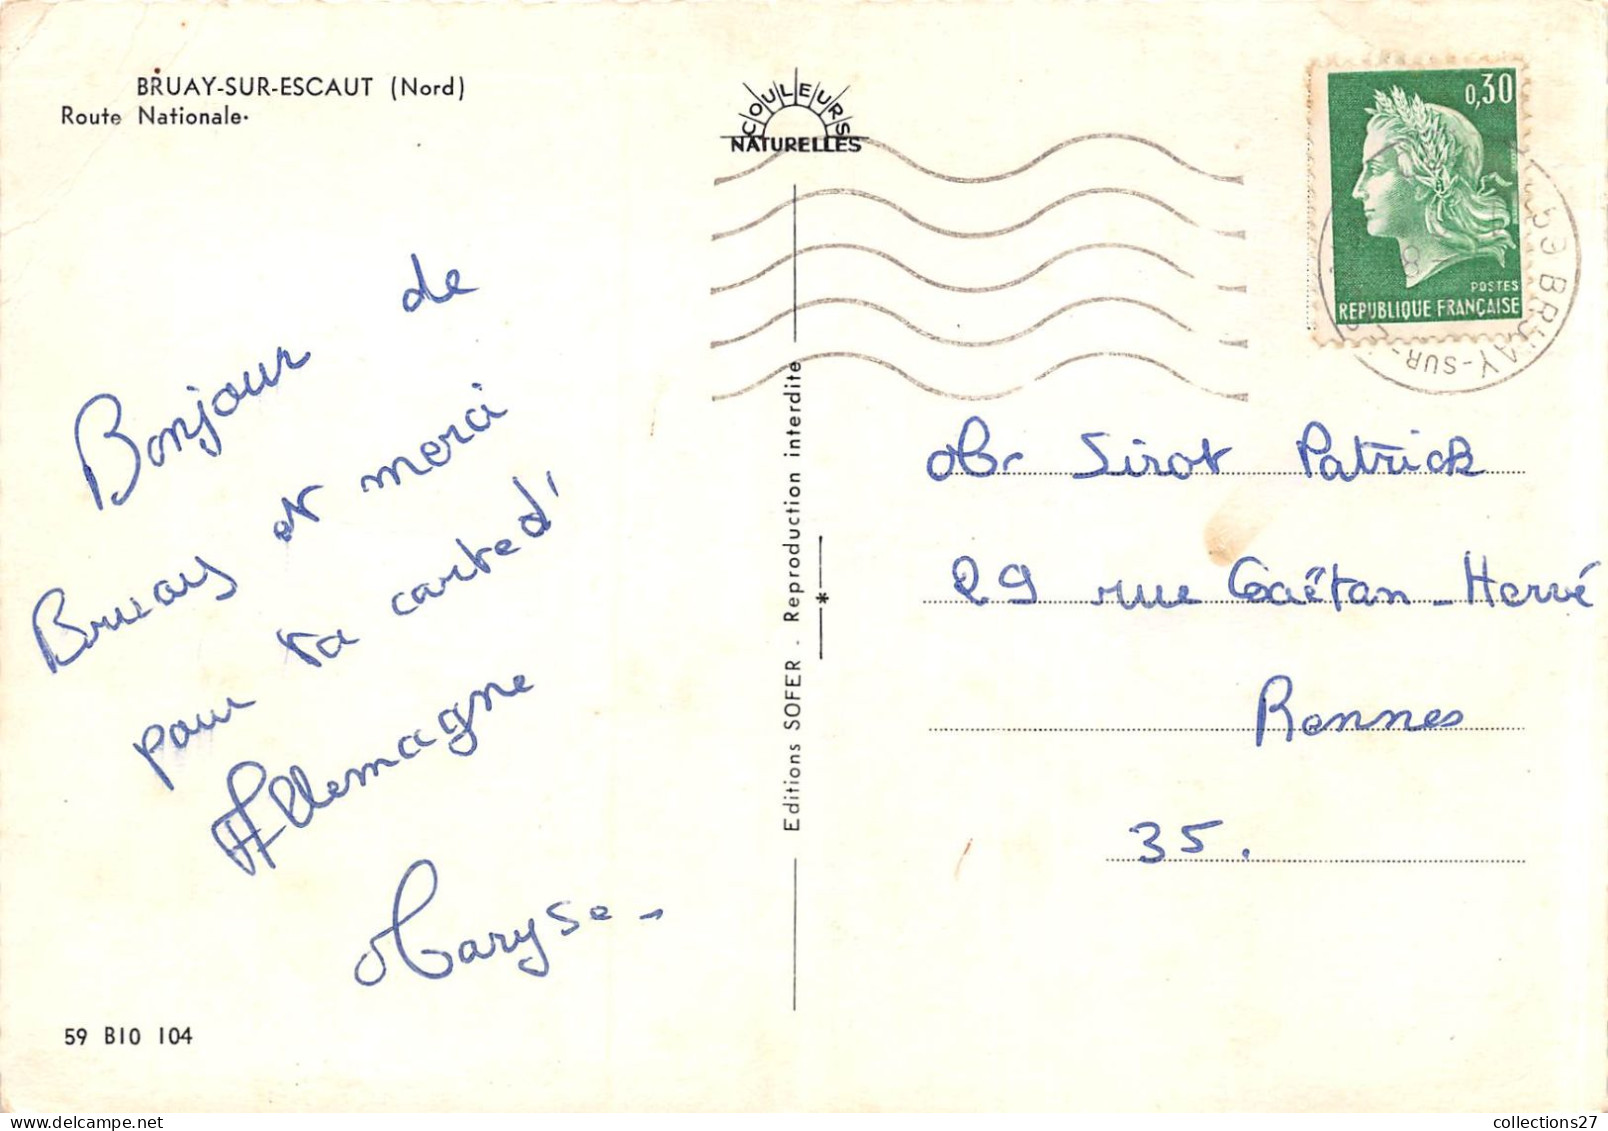 BRUAY-SUR-ESCAUT (Nord)
Route Nationale.
COULEURS
NATURELLES
0,30
POSTES
REPUBLIQUE FRANÇAISE
59 BRUAY-SUR-
Bonjour de
Bruay et merci
pour ta carte d'
Allemagne
Maryse_
59 B10 104
Editions SOFER . Reproduction interdite
*
Mr Sirot Patrick
29 rue Gaëtan_Hervé
Rennes
35.
collections27